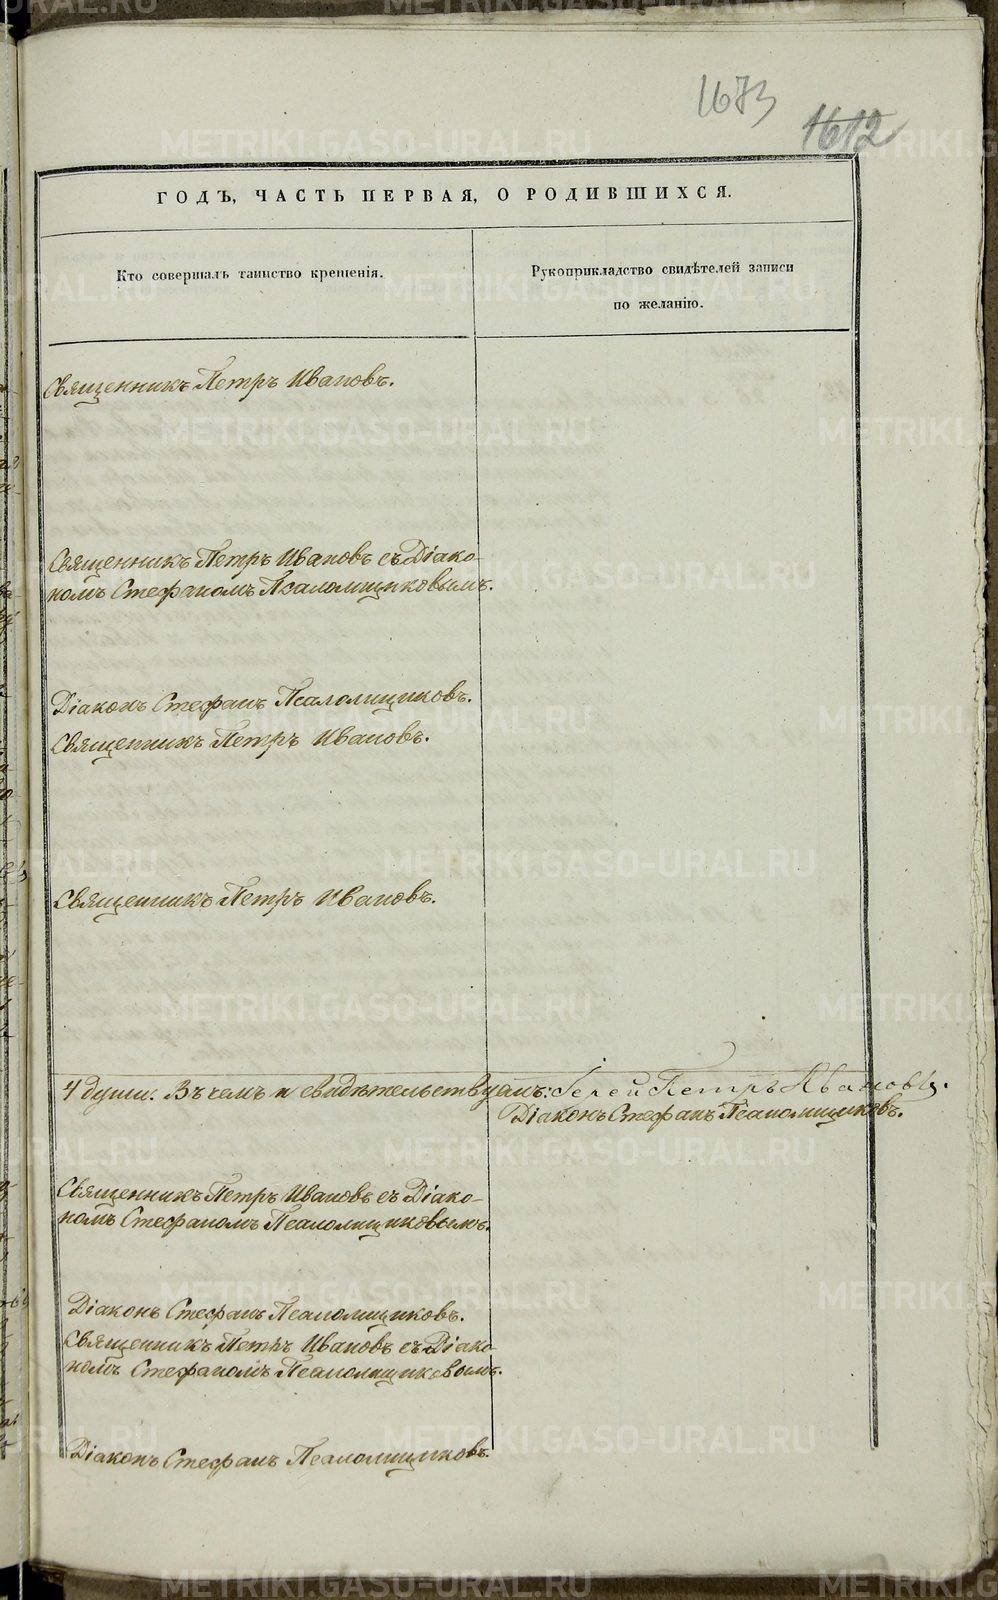 1673
1612
ГОДЪ, ЧАСТЬ ПЕРВАЯ, О РОДИВШИХСЯ.
Кто совершалъ таинство крещенія.
Рукоприкладство свидѣтелей записи
по желанію.
Священникъ Петръ Ивановъ.
Священникъ Петръ Ивановъ съ Діако-
номъ Стефаномъ Псаломщиковымъ.
Діаконъ Стефанъ Псаломщиковъ.
Священникъ Петръ Ивановъ.
Священникъ Петръ Ивановъ.
4 души. Въ чемъ и свидѣтельствуемъ: Іерей Петръ Ивановъ.
Діаконъ Стефанъ Псаломщиковъ.
Священникъ Петръ Ивановъ съ Діако-
номъ Стефаномъ Псаломщиковымъ.
Діаконъ Стефанъ Псаломщиковъ.
Священникъ Петръ Ивановъ съ Діако-
номъ Стефаномъ Псаломщиковымъ.
Діаконъ Стефанъ Псаломщиковъ.
METRIKI.GASO-URAL.RU